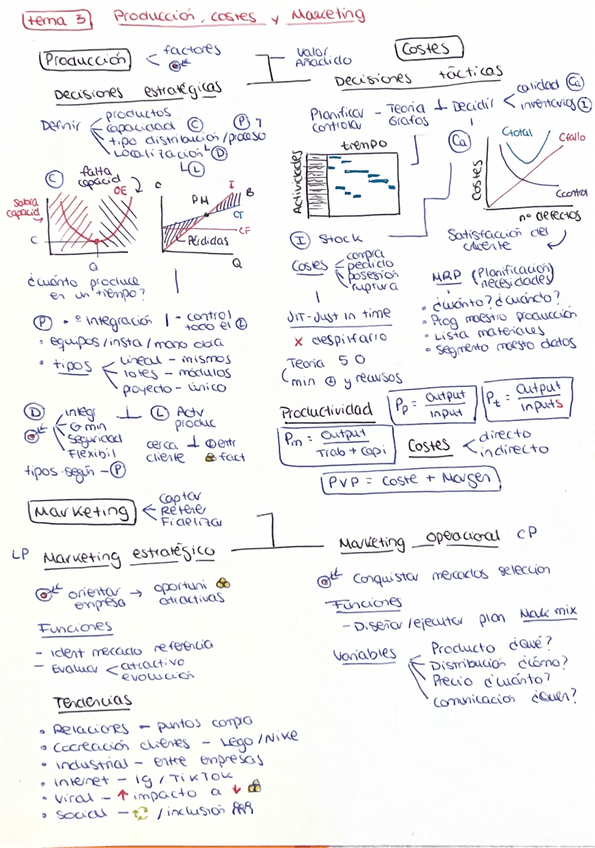 tema 3 Producción, costes y Marketing
Producción
factores
valor
Añadido
Costes
Decisiones estratégicas
Definir
productos
capacidad C
tipo distribución/proceso
Localización
P
D
L
C
falta
capacid
Sobra
capacid
OE
C
Q
¿cuánto produce
en un tiempo?
C
PM
I
B
CT
CF
Pérdidas
Q
P
Integración
control
todo el
equipos/insta/mano obra
tipos
Lineal - mismos
lotes - módulos
proyecto - único
D
integr
C min
Seguridad
Flexibil
L Actv
produc
cerca
cliente
fact
tipos según - P
Decisiones tácticas
Planificar
controlar
Teoria
Grafos
Decidir
calidad Ca
inventarios I
tiempo
Actividades
Ca
Costes
Ctotal
Cfallo
Ccontrol
nº defectos
Satisfacción del
cliente
I Stock
Costes
compra
pedido
posesión
ruptura
JIT - Just in time
x despilfarro
Teoria 5 0
min y recursos
MRP (Planificación
necesidades)
¿Cuánto? ¿Cuándo?
Prog maestro producción
Lista materiales
Segmento maestro datos
Productividad
Pp = output / input
Pt = output / inputs
Pm = output / Trab + capi
Costes
directo
indirecto
PVP = Coste + Margen
Marketing
Captar
Retener
Fidelizar
LP Marketing estratégico
orientar → oportuni
empresa atractivas
Funciones
- Ident mercado referencia
- Evaluar
atractivo
evolución
Tendencias
Relaciones - puntos compra
Cocreación clientes - Lego/Nike
Industrial - entre empresas
Internet - Ig/TikTok
Viral - ↑ impacto a ↓
Social - /inclusión
Marketing operacional CP
Conquistar mercados seleccion
Funciones
- Diseñar/ejecutar plan Mark mix
Variables
Producto ¿Qué?
Distribución ¿cómo?
Precio ¿cuánto?
Comunicación